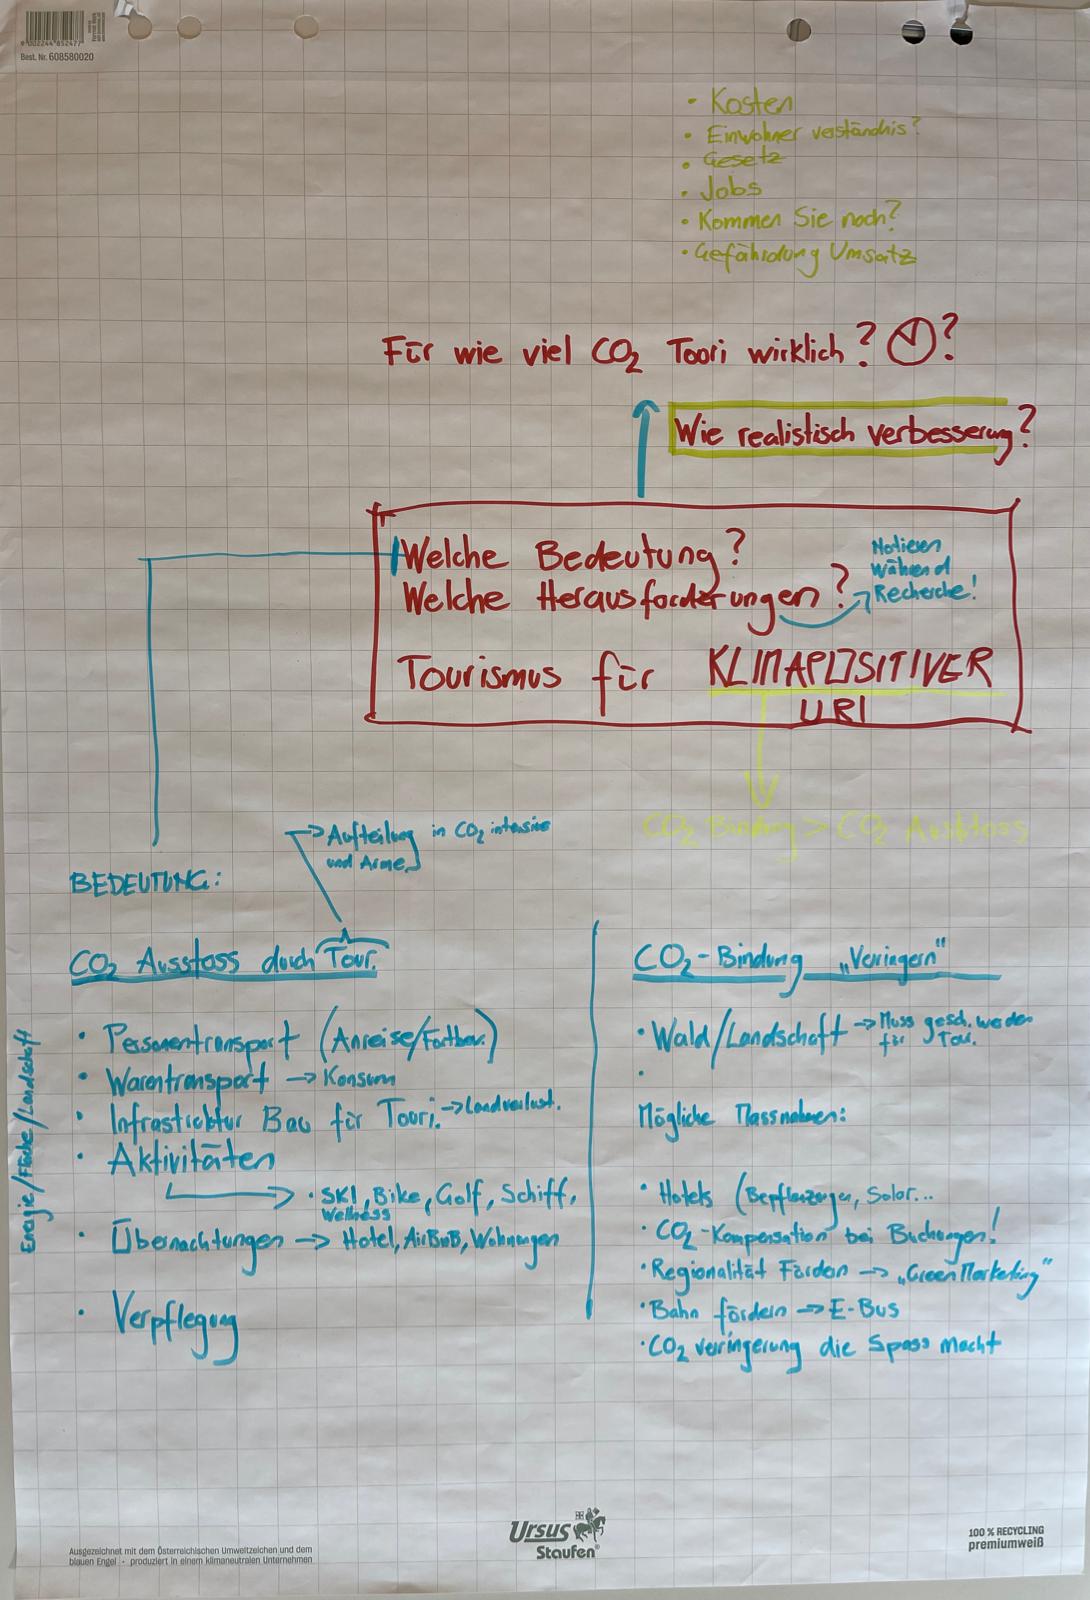 9002244852477
Best. Nr. 608580020
• Kosten
• Einwohner verständnis?
• Gesetz
• Jobs
• Kommen Sie noch?
• Gefährdung Umsatz
Für wie viel CO2 Touri wirklich? ?
Wie realistisch verbesserung?
Welche Bedeutung?
Welche Herausforderungen?
Notieren
Während
Recherche!
Tourismus für KLIMAPOSITIVER
URI
CO2 Bindung > CO2 Ausstoss
→ Aufteilung in CO2 intensive
und Arme
BEDEUTUNG:
CO2 Ausstoss durch Tour.
• Personentransport (Anreise/Fortbew.)
• Warentransport → Konsum
• Infrastruktur Bau für Touri. → Landverlust.
• Aktivitäten
→ • SKI, Bike, Golf, Schiff,
Wellness
• Übernachtungen → Hotel, AirBnB, Wohnungen
• Verpflegung
Energie/Fläche/Landschaft
CO2-Bindung „Verringern"
• Wald/Landschaft → Muss gesch. werden
für Tour.
•
Mögliche Massnahmen:
• Hotels (Bepflanzungen, Solar...
• CO2-Kompensation bei Buchungen!
• Regionalität Fördern → „Green Marketing"
• Bahn fördern → E-Bus
• CO2 verringerung die Spass macht
Ausgezeichnet mit dem Österreichischen Umweltzeichen und dem
blauen Engel · produziert in einem klimaneutralen Unternehmen
Ursus
Staufen®
100 % RECYCLING
premiumweiß